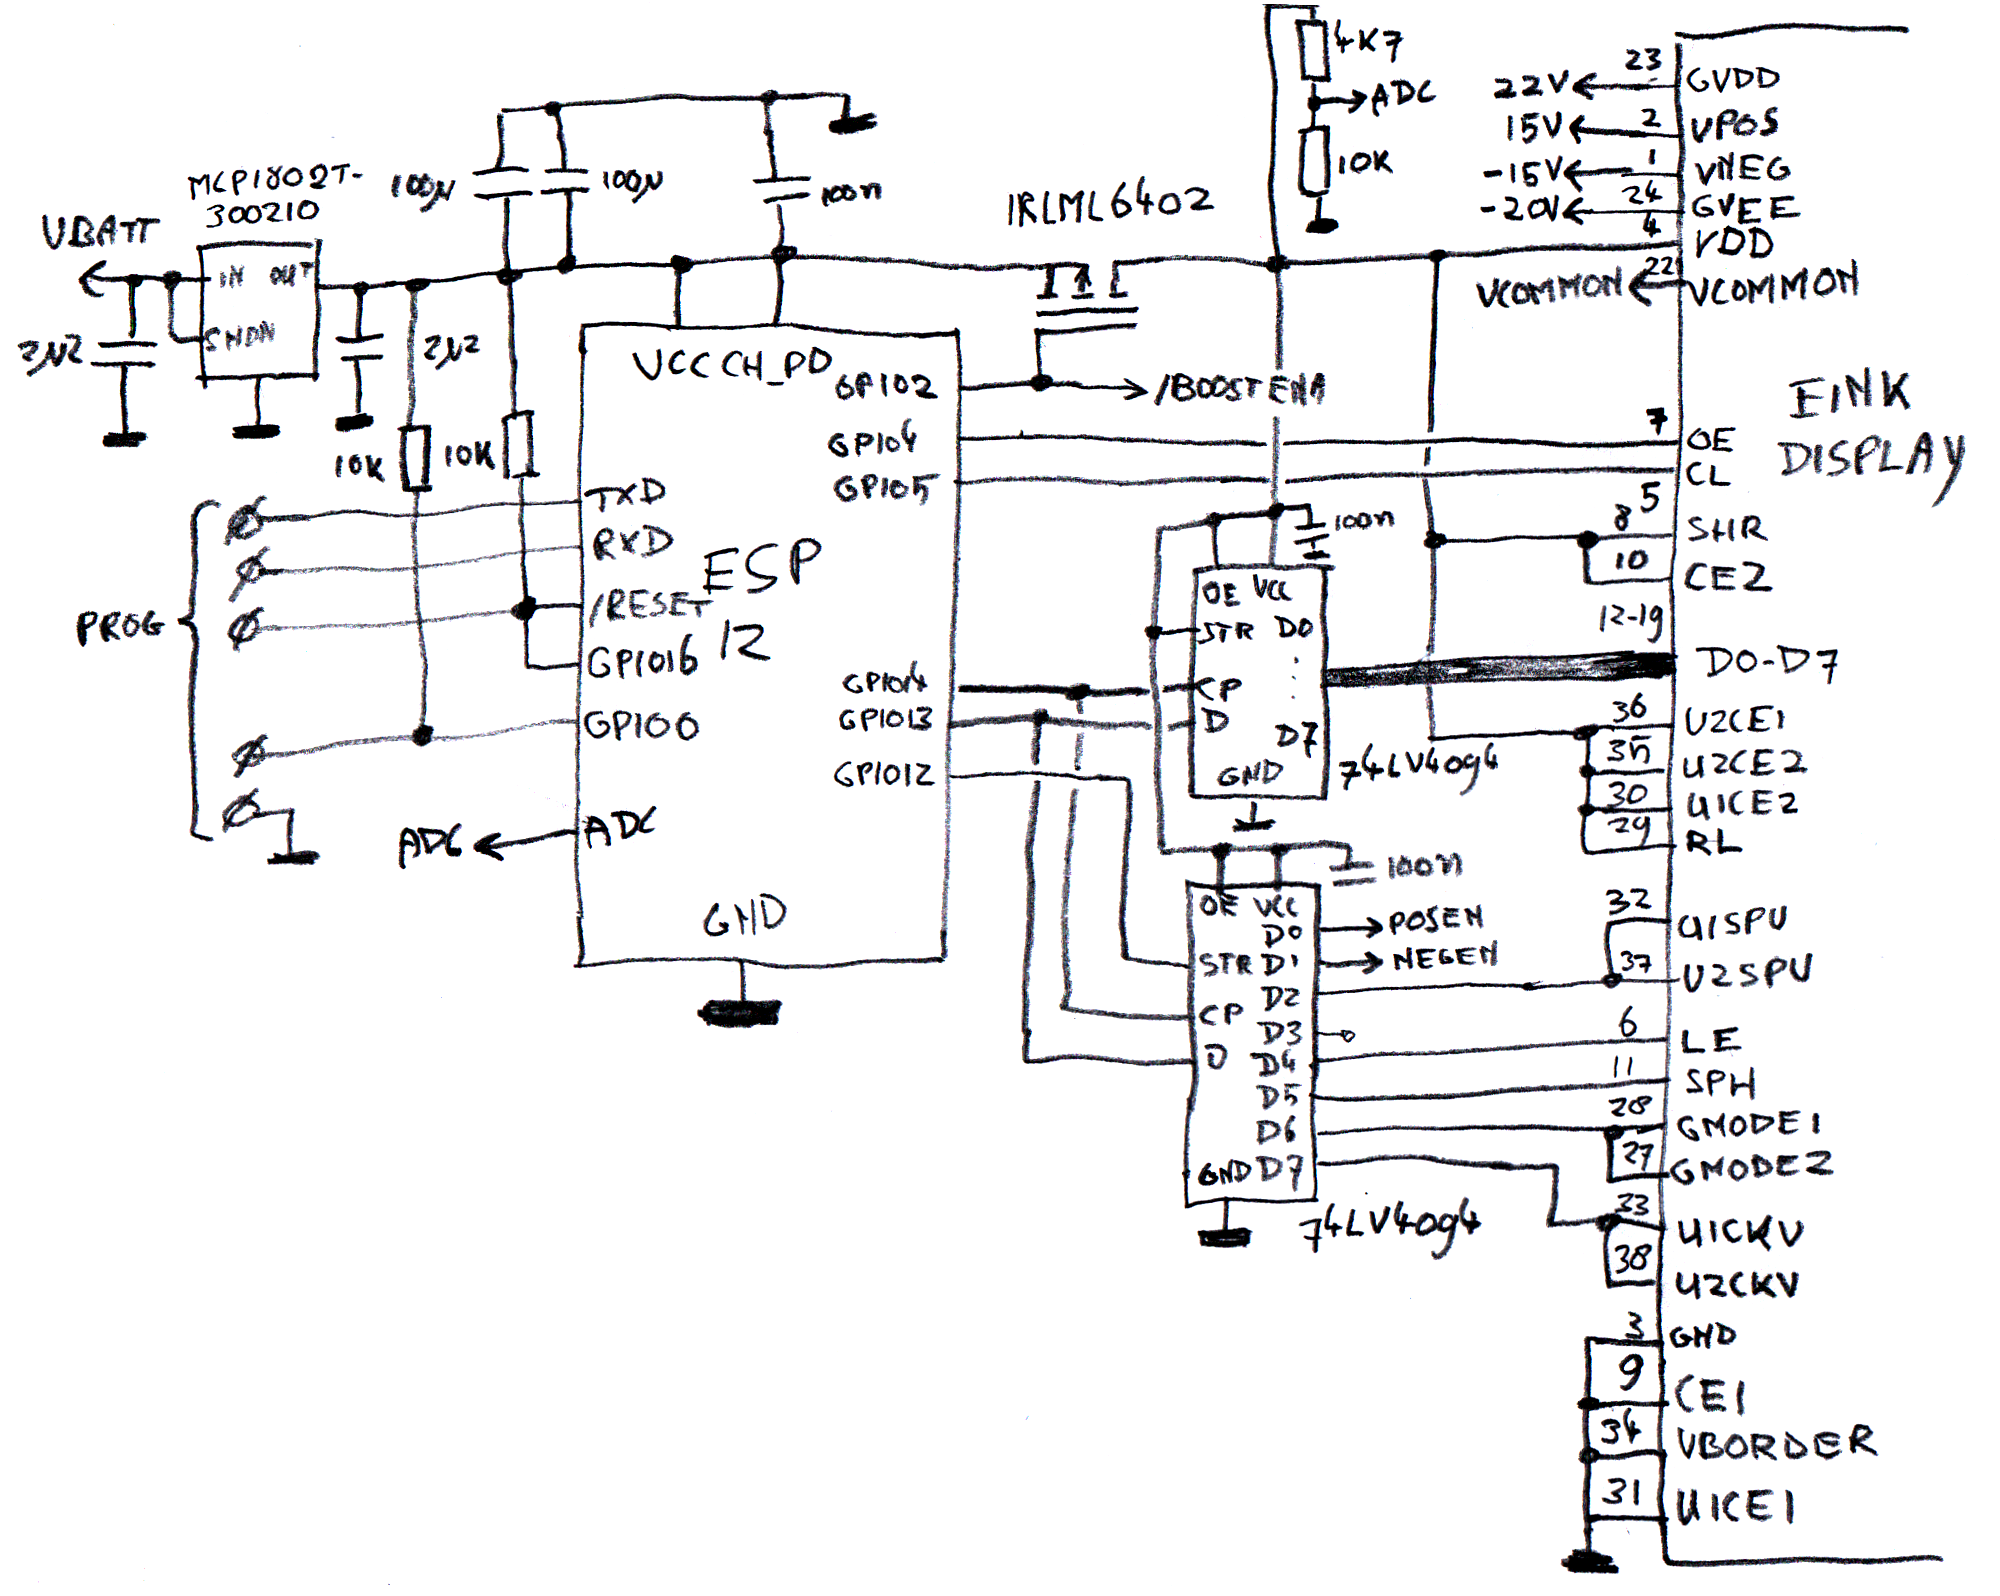 MCP1802T-
300210
VBATT
IN OUT
SHDN
2µ2
2µ2
100µ
100µ
100n
10K
10K
PROG
ADC
VCC CH_PD
GPIO2
GPIO4
GPIO5
TXD
RXD
/RESET
GPIO16
GPIO0
ADC
GND
ESP
12
GPIO14
GPIO13
GPIO12
IRLML6402
/BOOSTENA
4K7
ADC
10K
100n
OE VCC
STR D0
CP
D
D7
GND
74LV4094
100n
OE VCC
D0
STR D1
D2
CP
D3
D D4
D5
D6
GND D7
74LV4094
POSEN
NEGEN
22V 23 GVDD
15V 2 VPOS
-15V 1 VNEG
-20V 24 GVEE
4 VDD
VCOMMON 22 VCOMMON
EINK
DISPLAY
7 OE
CL
5
8 SHR
10 CE2
12-19
D0-D7
36 U2CE1
35 U2CE2
30 U1CE2
29 RL
32 U1SPV
37 U2SPV
6 LE
11 SPH
28 GMODE1
27 GMODE2
33 U1CKV
38 U2CKV
3 GND
9 CE1
34 VBORDER
31 U1CE1